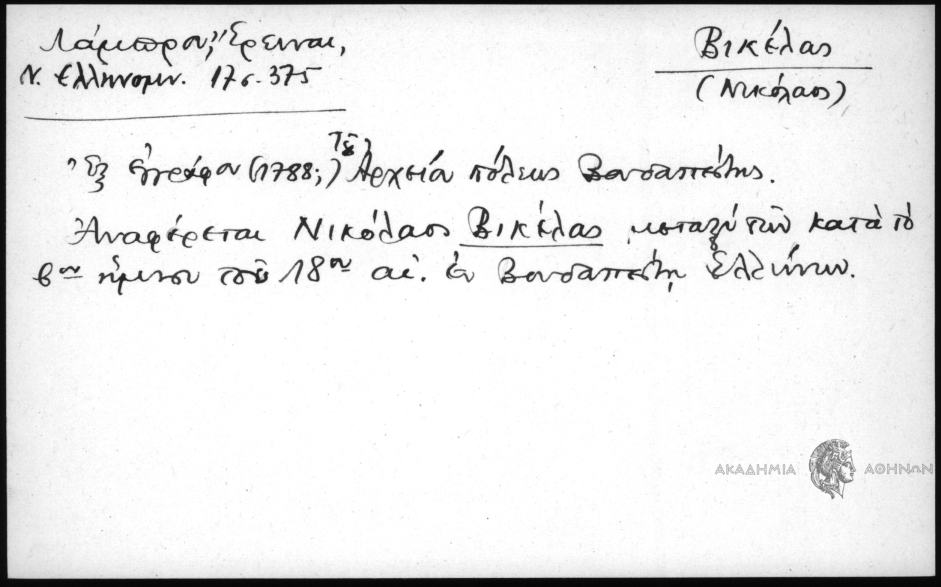 Λάμπρου, Ἔρευναι,
Ν. Ἑλληνομν. 17 σ. 375
Βικέλας
(Νικόλαος)
Ἐξ ἐγγράφου (1788;) τοῦ Ἀρχείου πόλεως Βουδαπέστης.
Ἀναφέρεται Νικόλαος Βικέλας μεταξὺ τῶν κατὰ τὸ
βον ἥμισυ τοῦ 18ου αἰ. ἐν Βουδαπέστῃ Ἑλλήνων.
ΑΚΑΔΗΜΙΑ ΑΘΗΝΩΝ